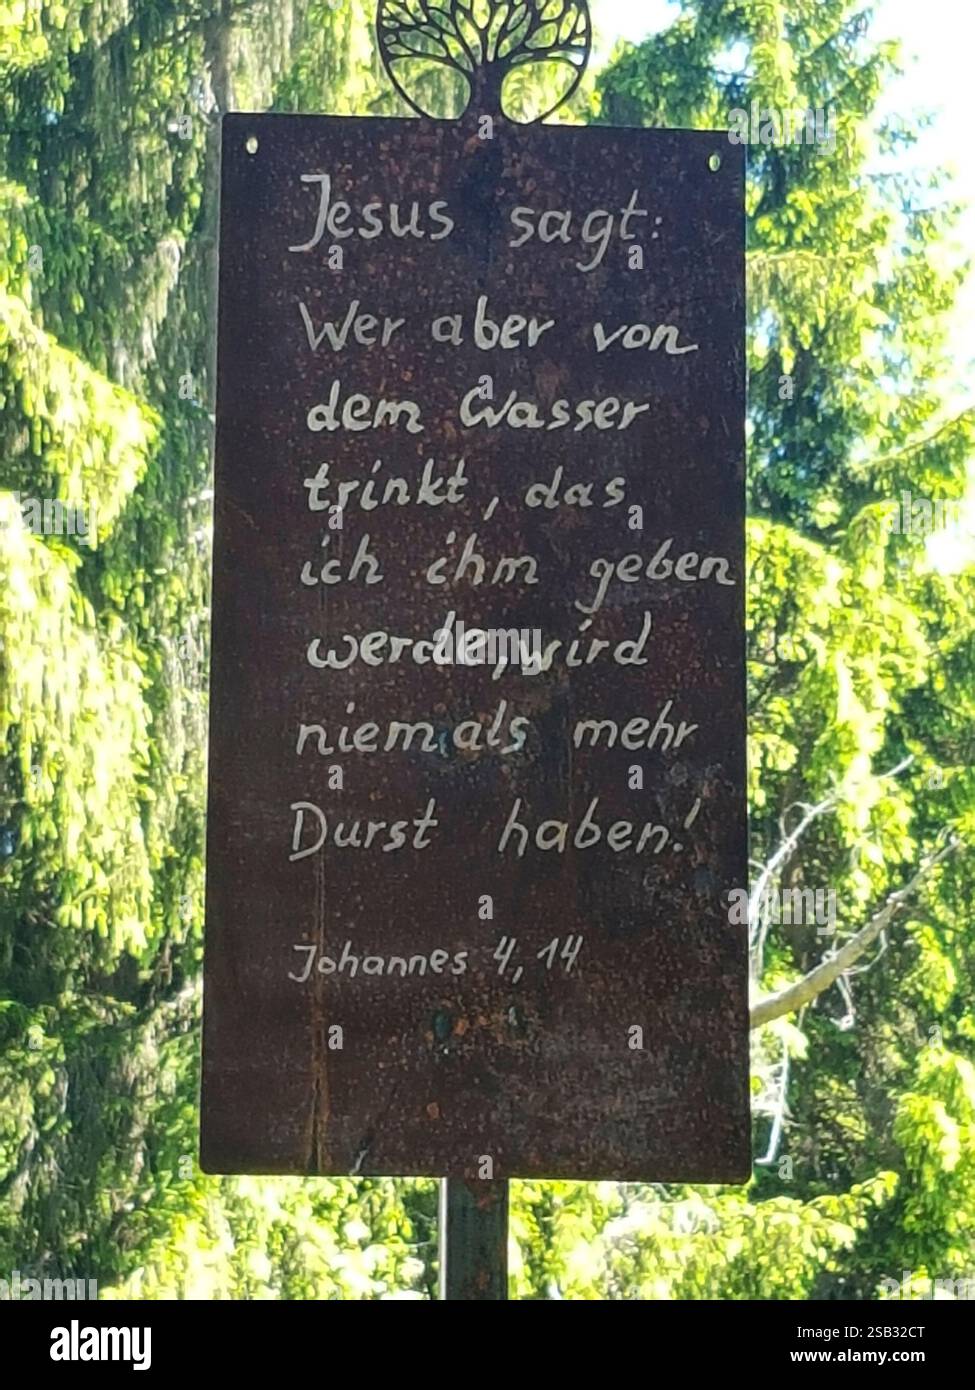 Jesus sagt:
Wer aber von
dem Wasser
trinkt, das
ich ihm geben
werde, wird
niemals mehr
Durst haben!
Johannes 4, 14
alamy
alamy
Image ID: 2SB32CT
www.alamy.com